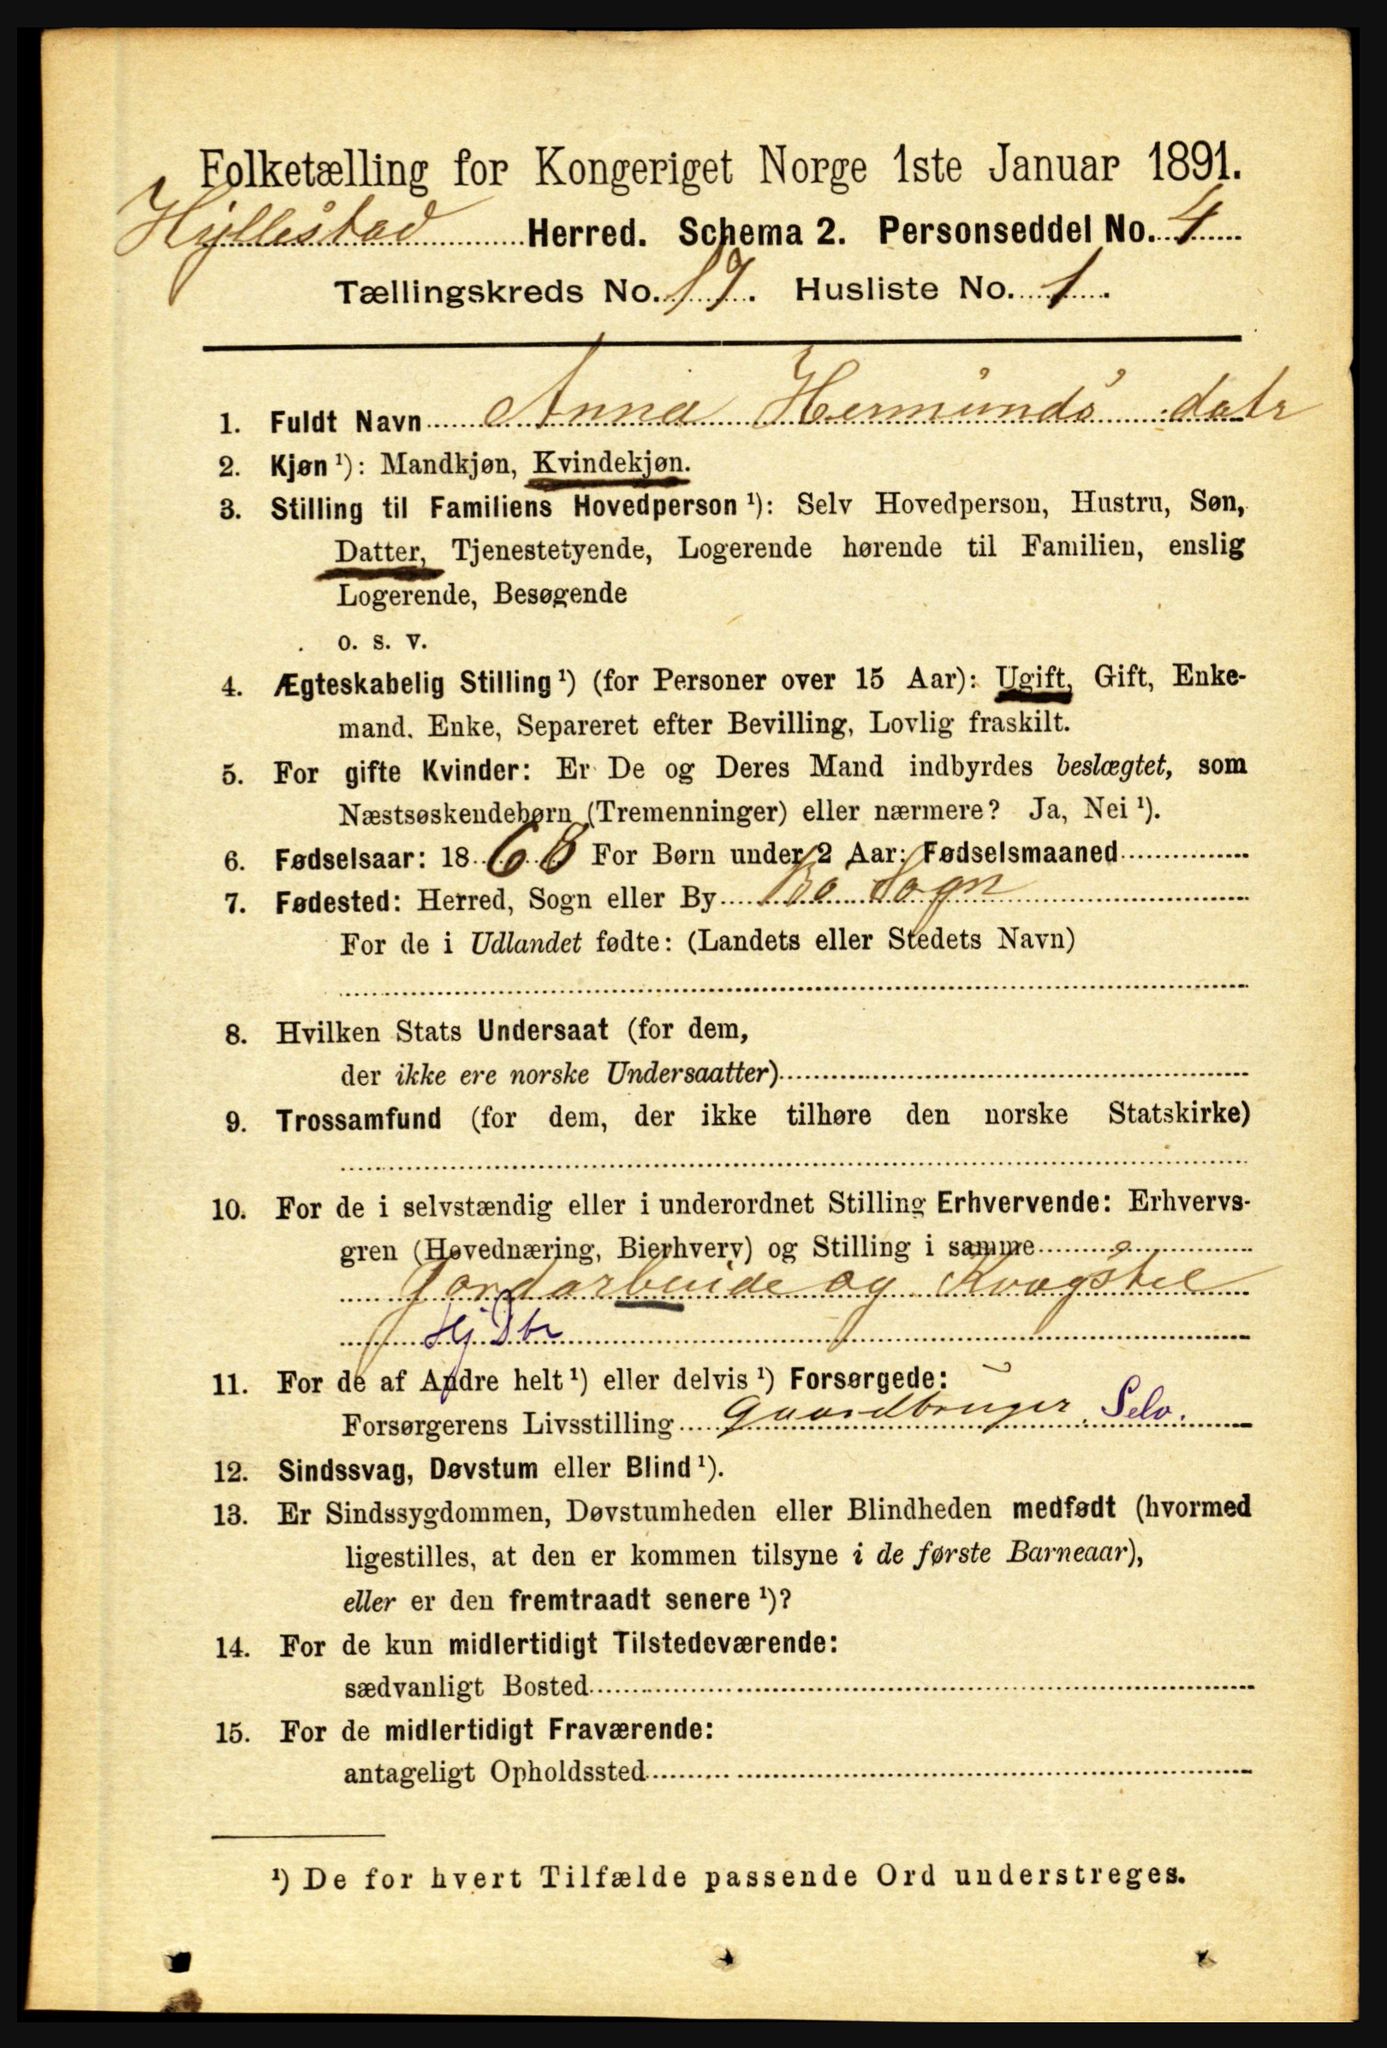 Folketælling for Kongeriget Norge 1ste Januar 1891.
Hyllestad Herred. Schema 2. Personseddel No. 4
Tællingskreds No. 17. Husliste No. 1.
1. Fuldt Navn Anna Hermunds datr
2. Kjøn ¹): Mandkjøn, Kvindekjøn.
3. Stilling til Familiens Hovedperson ¹): Selv Hovedperson, Hustru, Søn,
Datter, Tjenestetyende, Logerende hørende til Familien, enslig
Logerende, Besøgende
o. s. v.
4. Ægteskabelig Stilling ¹) (for Personer over 15 Aar): Ugift, Gift, Enke-
mand. Enke, Separeret efter Bevilling, Lovlig fraskilt.
5. For gifte Kvinder: Er De og Deres Mand indbyrdes beslægtet, som
Næstsøskendebørn (Tremenninger) eller nærmere? Ja, Nei ¹).
6. Fødselsaar: 1868 For Børn under 2 Aar: Fødselsmaaned
7. Fødested: Herred, Sogn eller By Bø Sogn
For de i Udlandet fødte: (Landets eller Stedets Navn)
8. Hvilken Stats Undersaat (for dem,
der ikke ere norske Undersaatter)
9. Trossamfund (for dem, der ikke tilhøre den norske Statskirke)
10. For de i selvstændig eller i underordnet Stilling Erhvervende: Erhvervs-
gren (Hovednæring, Bierhverv) og Stilling i samme
Jordarbeide og Kvægstel
Hj Dtr
11. For de af Andre helt ¹) eller delvis ¹) Forsørgede:
Forsørgerens Livsstilling Gaardbruger. Selv.
12. Sindssvag, Døvstum eller Blind ¹).
13. Er Sindssygdommen, Døvstumheden eller Blindheden medfødt (hvormed
ligestilles, at den er kommen tilsyne i de første Barneaar),
eller er den fremtraadt senere ¹)?
14. For de kun midlertidigt Tilstedeværende:
sædvanligt Bosted
15. For de midlertidigt Fraværende:
antageligt Opholdssted
¹) De for hvert Tilfælde passende Ord understreges.